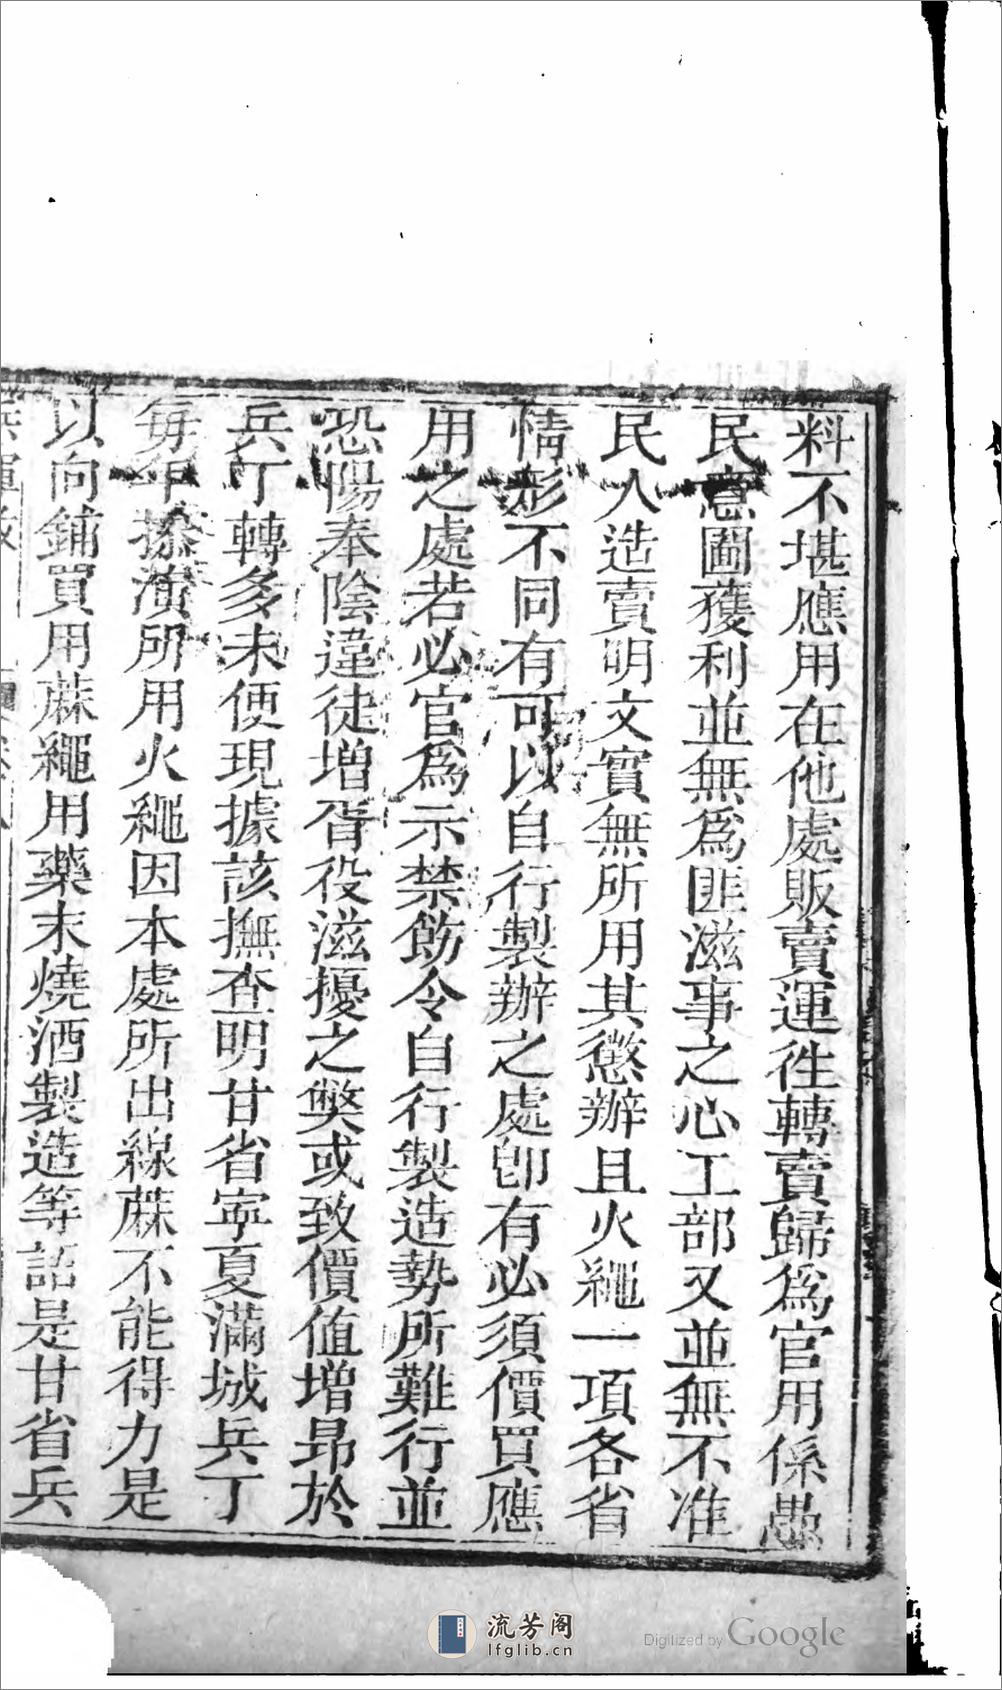 料不堪應用在他處販賣運徃轉賣歸為官用係愚
民意圖獲利並無為匪滋事之心工部又並無不准
民人造賣明文實無所用其懲辦且火繩一項各省
情形不同有可以自行製辦之處卽有必須價買應
用之處若必官為示禁飭令自行製造勢所難行並
恐陽奉陰違徒增胥役滋擾之獘或致價值增昂於
兵丁轉多未便現據該撫查明甘省寕夏滿城兵丁
每年操演所用火繩因本處所出線蔴不能得力是
以向鋪買用蔴繩用藥末燒酒製造等語是甘省兵
流芳阁
lfglib.cn
Digitized by Google